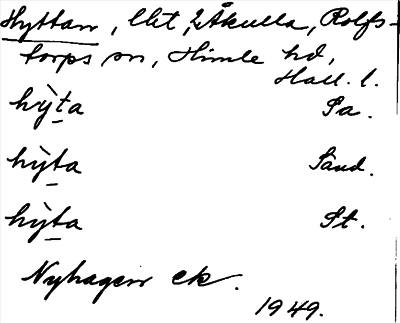 Hyttan, lht, Åkulla, Rolfs-
torps sn, Himle hd,
Hall. l.
hỳta Pa.
hỳta Sand.
hỳta St.
Nyhagen ek.
1949.